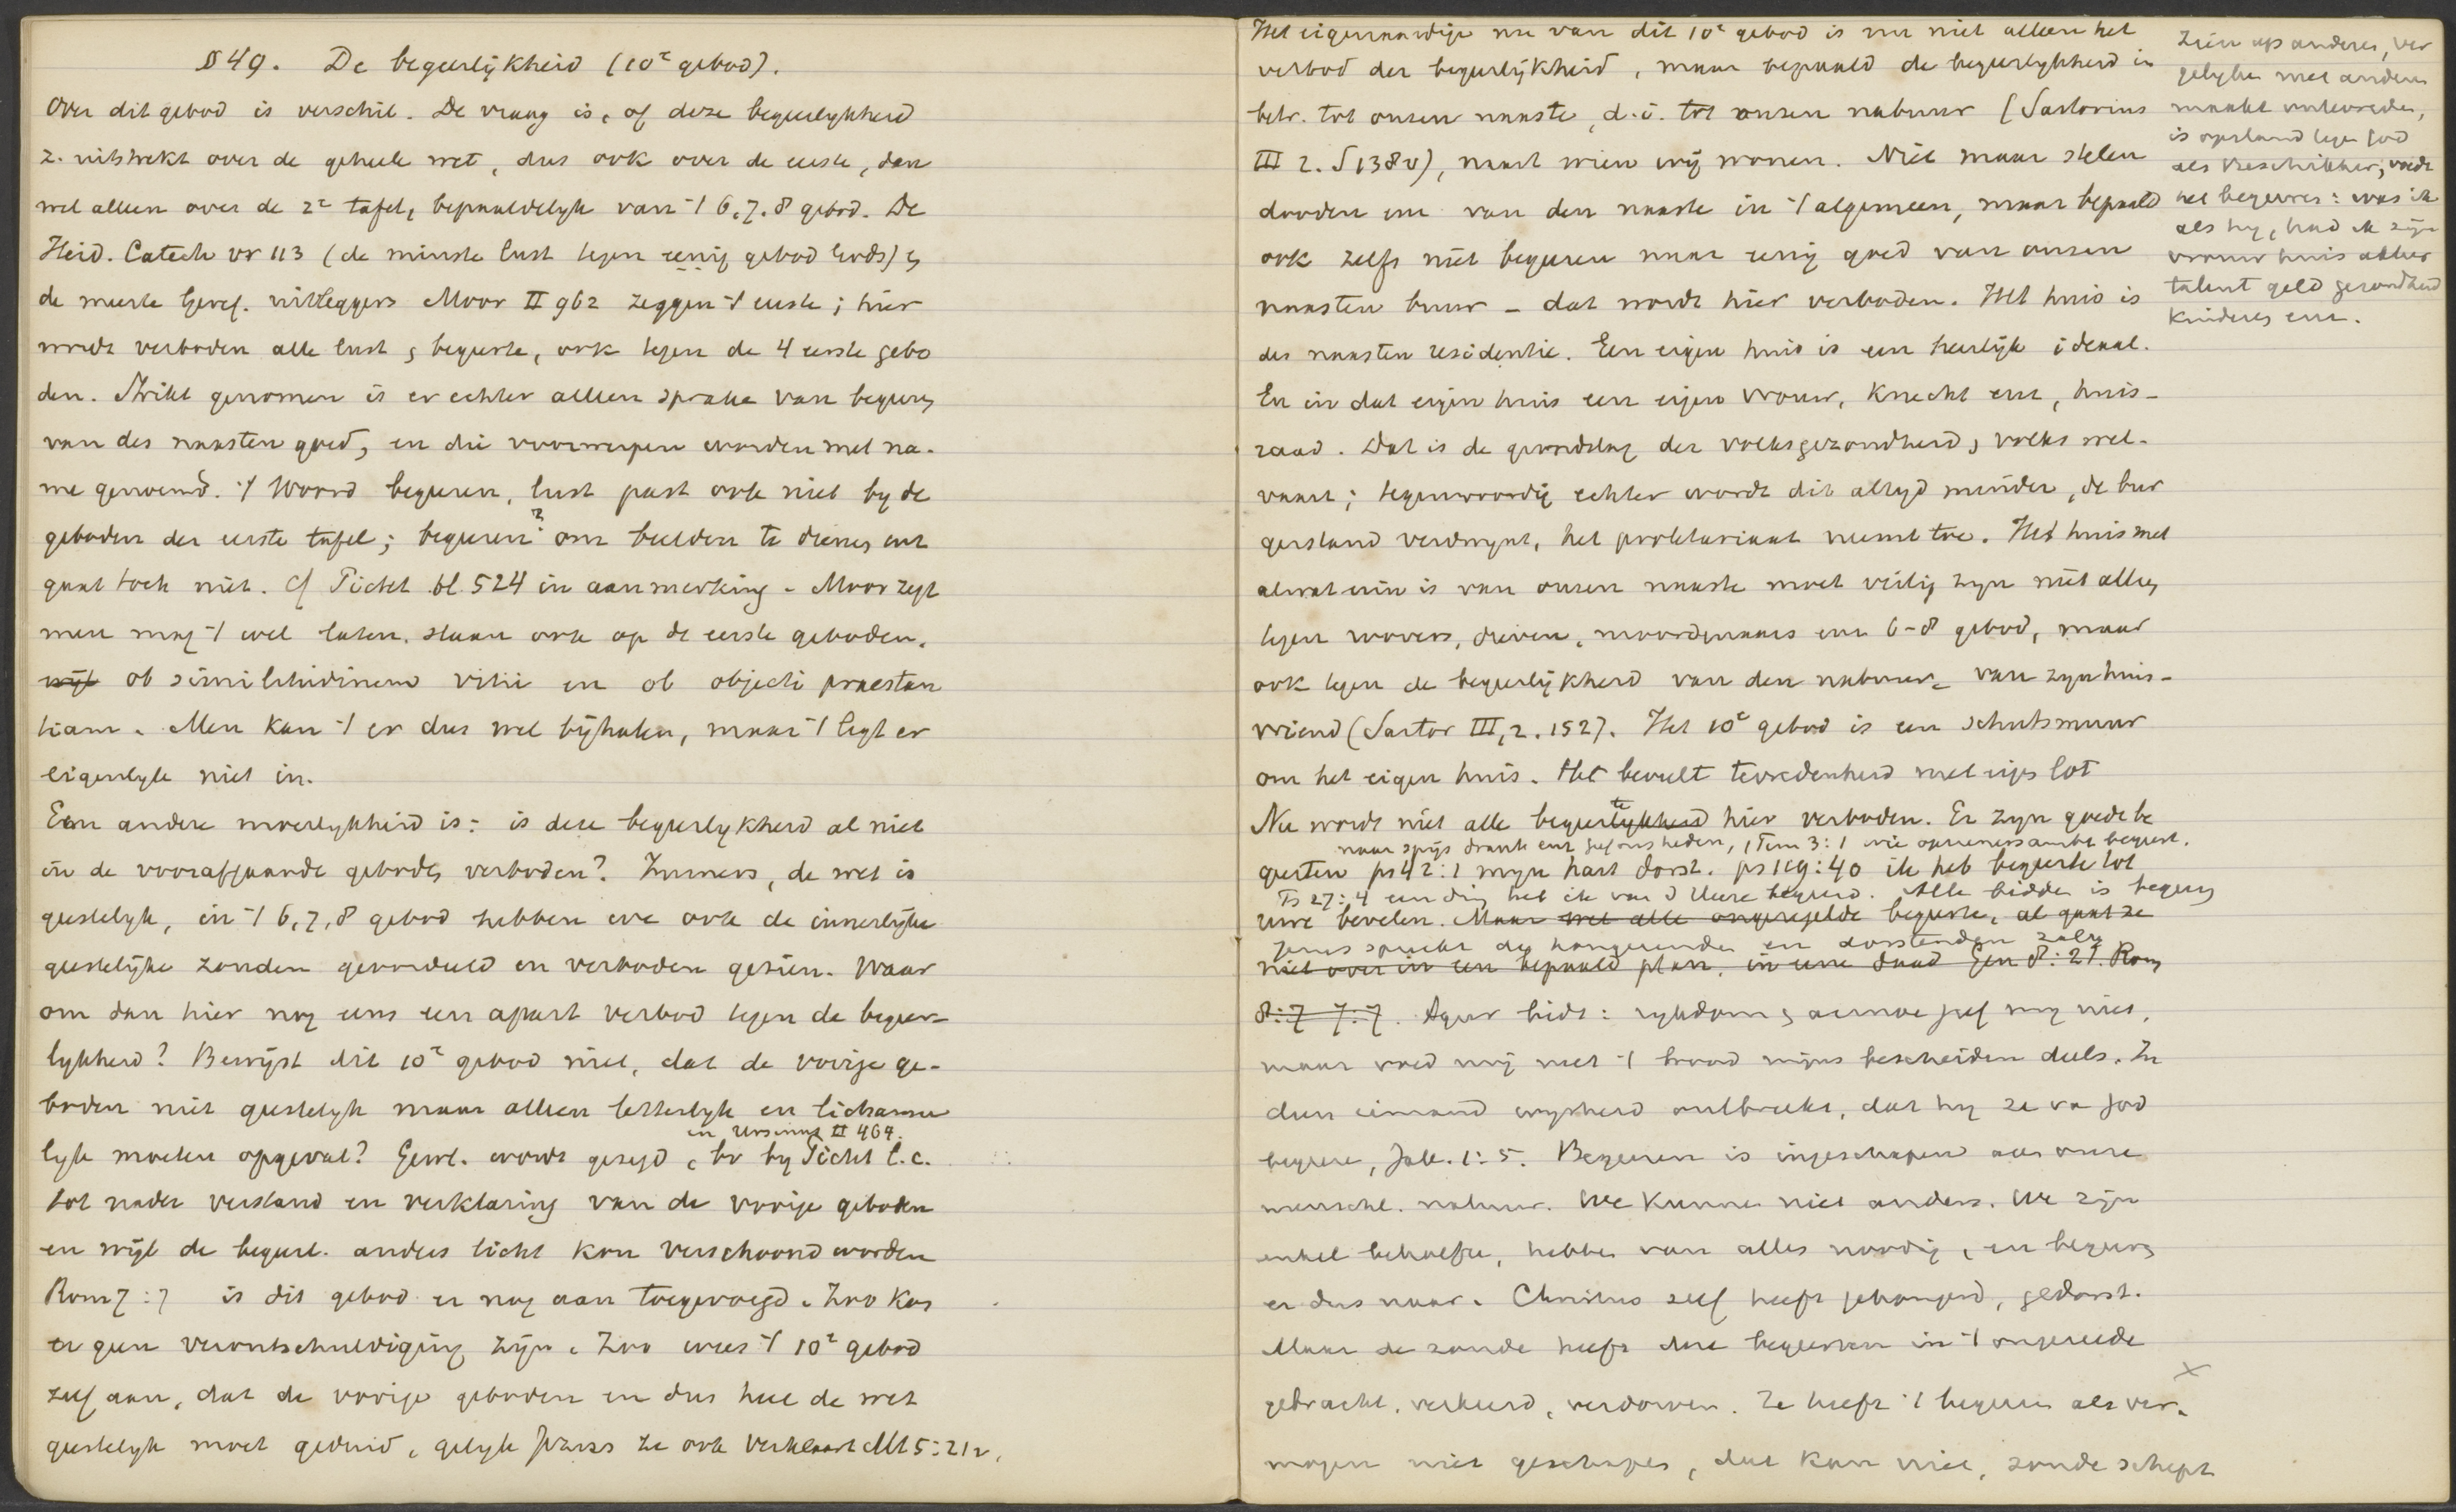 § 49. De begeerlijkheid (10e gebod).
Over dit gebod is verschil. De vraag is, of deze begeerlykheid
z. uitstrekt over de geheele wet, dus ook over de eerste, dan
wel alleen over de 2e tafel, bepaaldelyk van 't 6, 7, 8 gebod. De
Heid. Catech vr 113 (de minste lust tegen eenig gebod Gods) en
de meeste Geref. uitleggers Moor II 962 zeggen 't eerste; hier
wordt verboden alle lust en begeerte, ook tegen de 4 eerste gebo
den. Strikt genomen is er echter alleen sprake van begeeren
van des naasten goed, en die voorwerpen worden met na-
me genoemd. 't Woord begeeren, lust past ook niet by de
geboden der eerste tafel; begeeren? om beelden te dienen enz
gaat toch niet. Cf Pictet bl. 524 in aanmerking. Moor zegt
men mag 't wel laten slaan ook op de eerste geboden.
wijl ob similitudinem vitii en ob objecti praestan
tiam. Men kan 't er dus wel bijhalen, maar 't ligt er
eigenlyk niet in.
Een andere moeilykheid is: is deze begeerlykheid al niet
in de voorafgaande geboden verboden? Immers, de wet is
geestelyk, in 't 6, 7, 8 gebod hebben we ook de innerlijke
geestelijke zonden geoordeeld en verboden gezien. Waar
om dan hier nog eens een apart verbod tegen de begeer-
lykheid? Bewijst dit 10e gebod niet, dat de vorige ge-
boden niet geestelyk maar alleen letterlyk en lichame
en Ursinus II 464.
lyk moeten opgevat? Gewl. wordt gezegd, bv by Pictet l.c.
tot nader verstand en verklaring van de vorige geboden
en wijl de begeerl. anders licht kon verschoond worden
Rom 7:7 is dit gebod er nog aan toegevoegd. Zoo kon
er geen verontschuldiging zijn. Zoo wees 't 10e gebod
zelf aan, dat de vorige geboden en dus heel de wet
geestelyk moet geduid, gelyk Jezus ze ook verklaart Mt 5:21v.
Het eigenaardige nu van dit 10e gebod is nu niet alleen het
verbod der begeerlijkheid, maar bepaald de begeerlykheid in
betr. tot onzen naaste, d.i. tot onzen nabuur (Sartorius
III 2. S 138v), naast wien wij wonen. Niet maar stelen
dooden enz van den naaste in 't algemeen, maar bepaald
ook zelfs niet begeeren naar eenig goed van onzen
naasten buur - dat wordt hier verboden. Het huis is
des naasten residentie. Een eigen huis is een heerlijk ideaal.
En in dat eigen huis een eigen vrouw, knecht enz, huis-
raad. Dat is de grondslag der volksgezondheid, volks wel-
vaart; tegenwoordig echter wordt dit altyd minder, de bur
gerstand verdwynt, het proletariaat neemt toe. Het huis met
alwat erin is van onzen naaste moet veilig zyn niet alleen
tegen roovers, dieven, moordenaars enz 6-8 gebod, maar
ook tegen de begeerlijkheid van den nabuur, van zyn huis-
vriend (Sartor III, 2. 152). Het 10e gebod is een schutsmuur
om het eigen huis. Het beveelt tevredenheid met eigen lot
Zien op anderen, ver
gelyken met anderen
maakt ontevreden,
is opstand tegen God
als Beschikker, voedt
het begeeren: was ik
als hy, had ik zijn
vrouw huis akker
talent geld gezondheid
kinderen enz.
Nu wordt niet alle begeerlykheid te hier verboden. Er zyn goede be
naar spijs drank enz geoorloofd, 1 Tim 3:1 wie opzienersambt begeert.
geerten ps 42:1 myn hart dorst. ps 119:40 ik heb begeerte tot
Ps 27:4 een ding heb ik van d Heere begeerd. Alle bidden is begeeren
uwe bevelen. Maar wel alle ongeregelde begeerte, al gaat ze
Jezus spreekt de hongerenden en dorstenden zalig
niet over in een bepaald plan, in eene daad Gen 8:21. Rom
8:7 7:7. Agur bidt: rykdom en armoe geef my niet,
maar voed mij met 't brood mijns bescheiden deels. In
dien iemand wysheid ontbreekt, dat hy ze van God
begeere, Jak. 1:5. Begeeren is ingeschapen aan onze
menschel. natuur. We kunnen niet anders. We zijn
enkel behoefte, hebben van alles noodig, en begeeren
er dus naar. Christus zelf heeft gehongerd, gedorst.
Maar de zonde heeft deze begeerten in 't ongereede
gebracht, verkeerd, verdorven. Ze heeft 't begeeren als ver-
mogen niet geschapen, dat kan niet, zonde schept